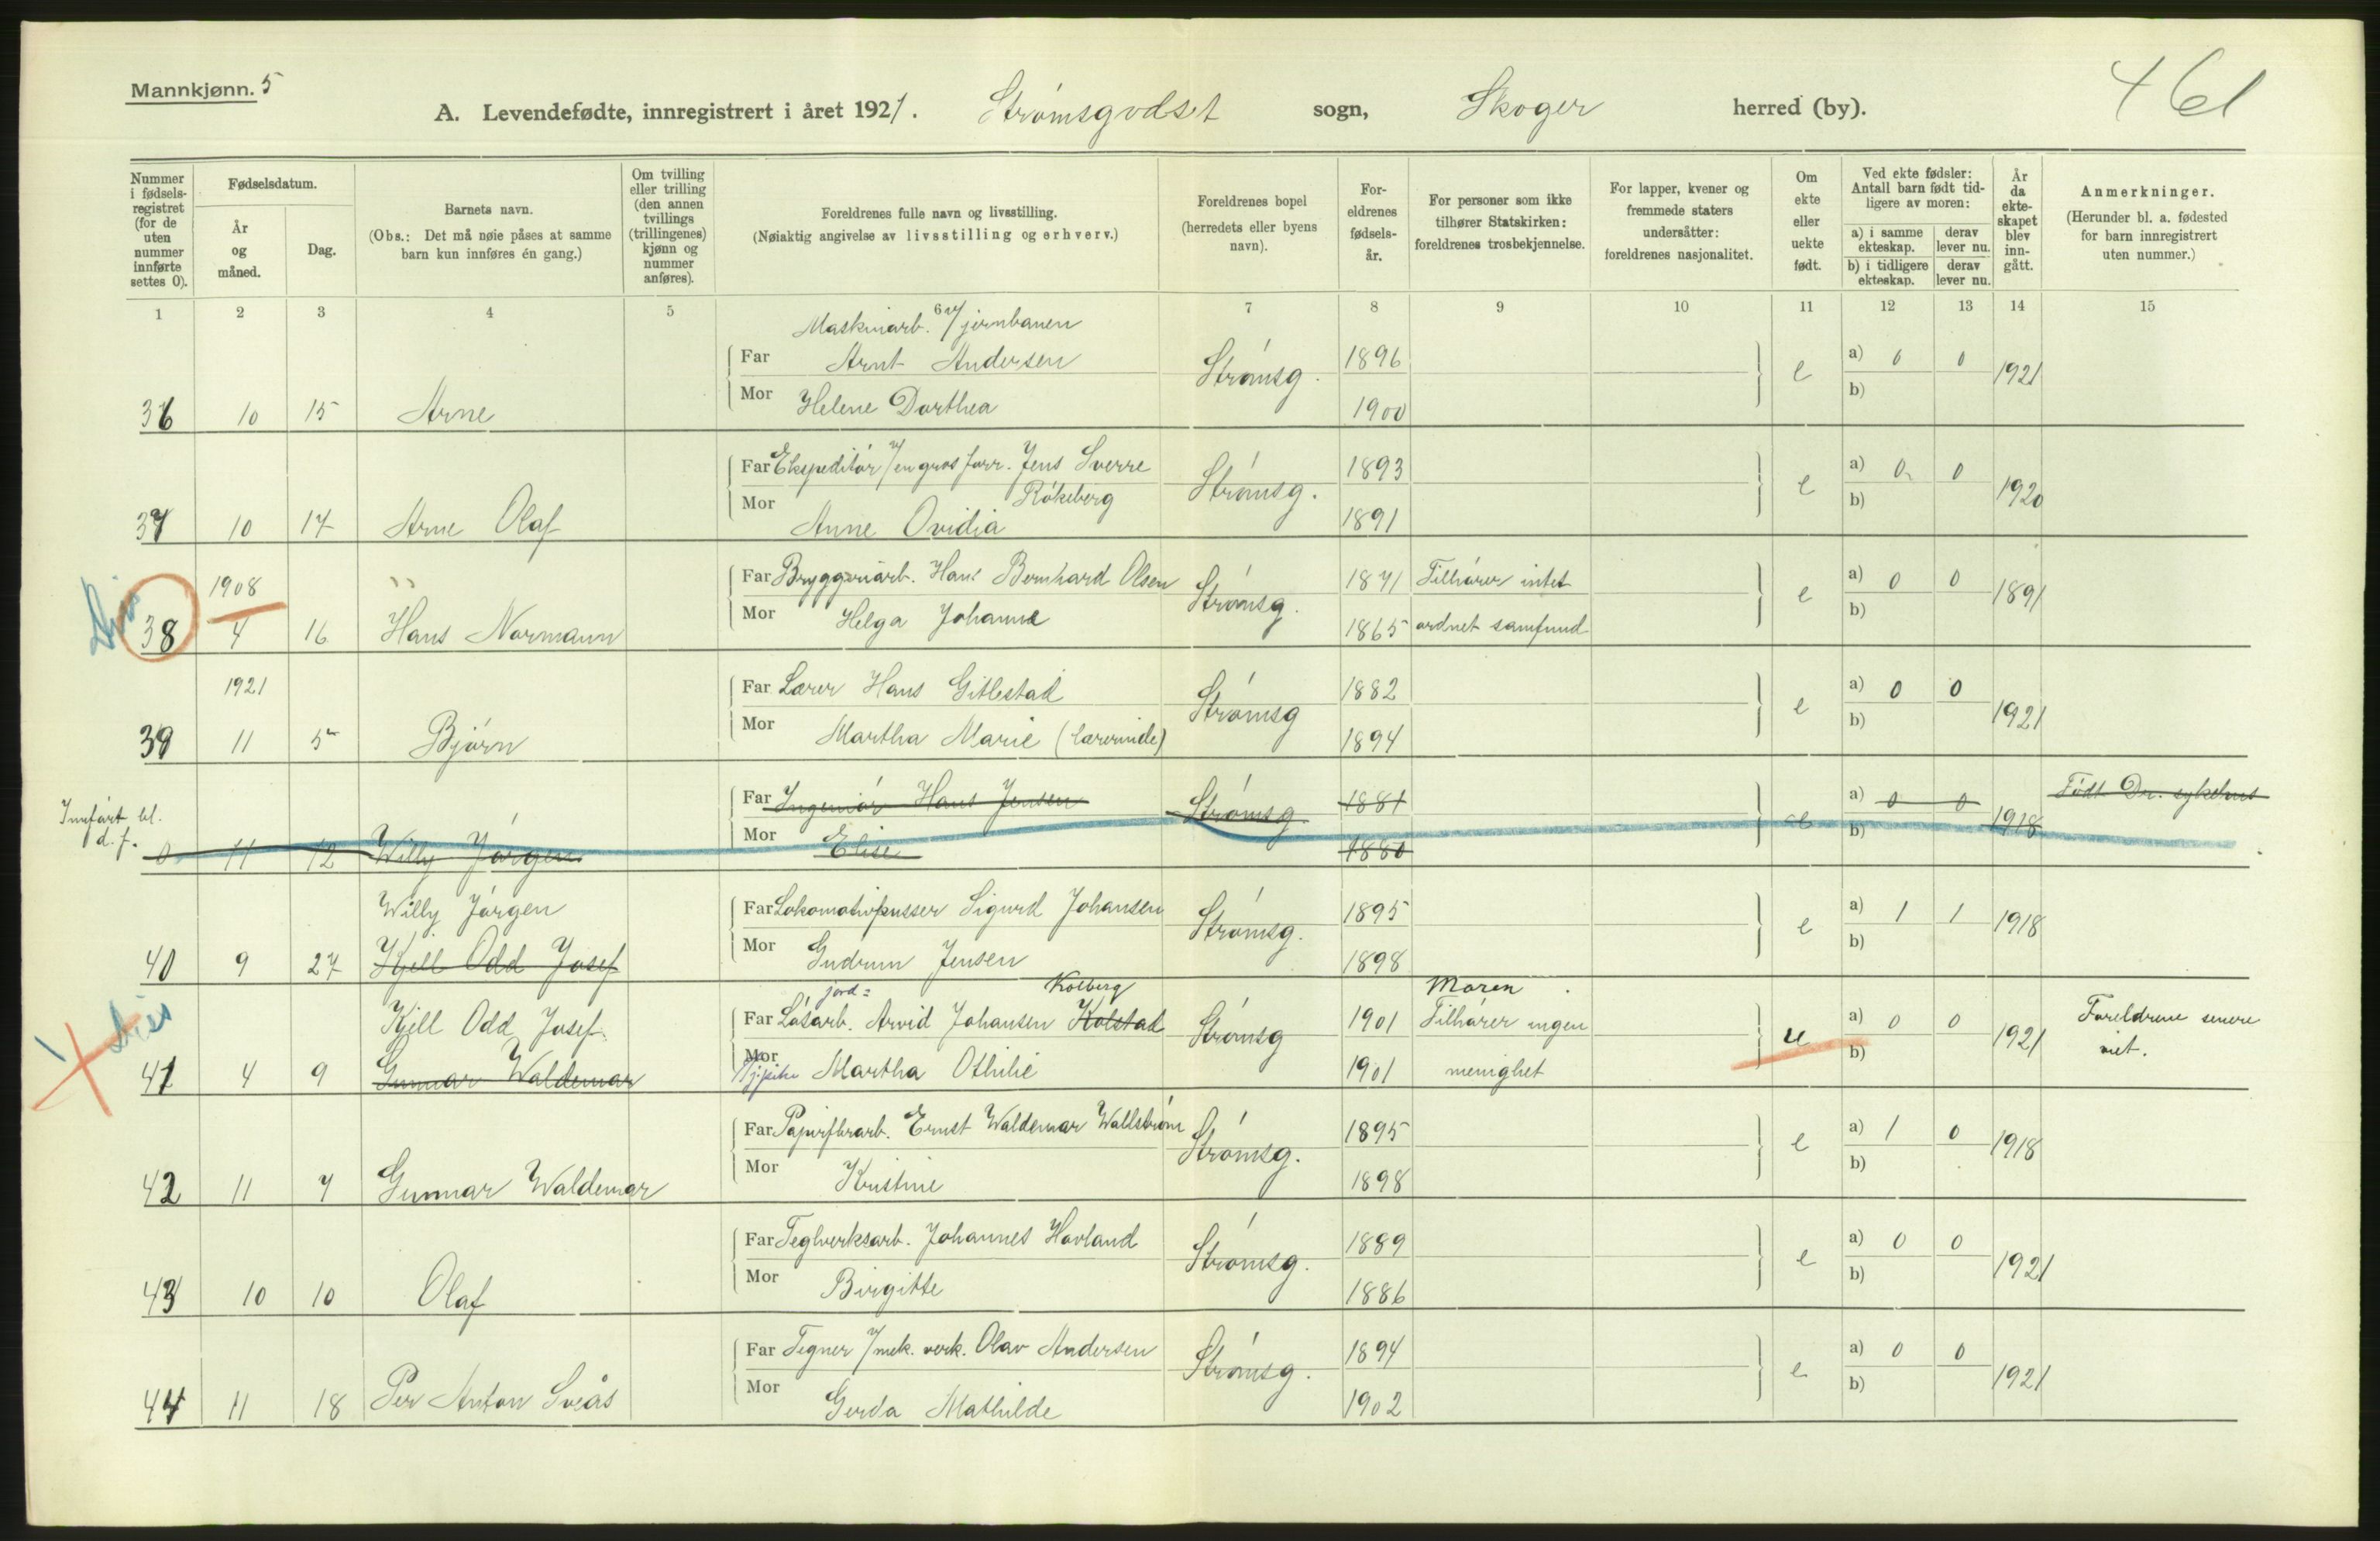 Mannkjønn. 5
A. Levendefødte, innregistrert i året 1921. Strømsgodset sogn, Skoger herred (by).
461
Nummer i fødsels-registret (for de uten nummer innførte settes 0).
Fødselsdatum.
År og måned.
Dag.
Barnets navn.
(Obs.: Det må nøie påses at samme barn kun innføres én gang.)
Om tvilling eller trilling (den annen tvillings (trillingenes) kjønn og nummer anføres).
Foreldrenes fulle navn og livsstilling.
(Nøiaktig angivelse av livsstilling og erhverv.)
Foreldrenes bopel (herredets eller byens navn).
For-eldrenes fødsels-år.
For personer som ikke tilhører Statskirken: foreldrenes trosbekjennelse.
For lapper, kvener og fremmede staters undersåtter: foreldrenes nasjonalitet.
Om ekte eller uekte født.
Ved ekte fødsler: Antall barn født tid-ligere av moren:
a) i samme ekteskap. derav lever nu.
b) i tidligere ekteskap. derav lever nu.
År da ekte-skapet blev inn-gått.
Anmerkninger.
(Herunder bl. a. fødested for barn innregistrert uten nummer.)
1 2 3 4 5 6 7 8 9 10 11 12 13 14 15
Maskinarb. v/jernbanen
Far Arnt Andersen Strømsg. 1896 e a) 0 0 1921
36 10 15 Arne Mor Helene Dorthea 1900 b)
Far Ekspeditør v/en gros forr. Jens Sverre Strømsg. 1893 e a) 0 0 1920
Røkeberg
37 10 17 Arne Olaf Mor Anne Ovidia 1891 b)
1908 Far Bryggeriarb. Hans Bernhard Olsen Strømsg. 1871 Tilhører intet e a) 0 0 1891
38 4 16 Hans Normann Mor Helga Johanne 1865 ordnet samfund b)
1921 Far Lærer Hans Gitlestad Strømsg 1882 e a) 0 0 1921
39 11 5 Bjørn Mor Martha Marie (lærerinde) 1894 b)
Innført bl. d. f.
Far Ingeniør Hans Jensen Strømsg. 1881 a) 0 0 1918 Født Dr. sykehus
0 11 12 Willy Jørgen Mor Elise 1880 b)
Willy Jørgen Far Lokomotivpusser Sigurd Johansen Strømsg. 1895 e a) 1 1 1918
40 9 27 Kjell Odd Josef Mor Gudrun Jensen 1898 b)
jord= Kolberg Moren
Kjell Odd Josef Far Løsarb. Arvid Johansen Kolstad Strømsg 1901 Tilhører ingen u a) 0 0 1921 Foreldrene senere viet.
41 4 9 Gunnar Waldemar Mor Martha Othilie 1901 menighet b)
Far Papirfbrarb. Ernst Waldemar Wallstrøm Strømsg. 1895 e a) 1 0 1918
42 11 7 Gunnar Waldemar Mor Kristine 1898 b)
Far Teglverksarb. Johannes Hovland Strømsg. 1889 e a) 0 0 1921
43 10 10 Olaf Mor Birgitte 1886 b)
Far Tegner v/mek. verk. Olav Andersen Strømsg. 1894 e a) 0 0 1921
44 11 18 Per Anton Sveås Mor Gerda Mathilde 1902 b)